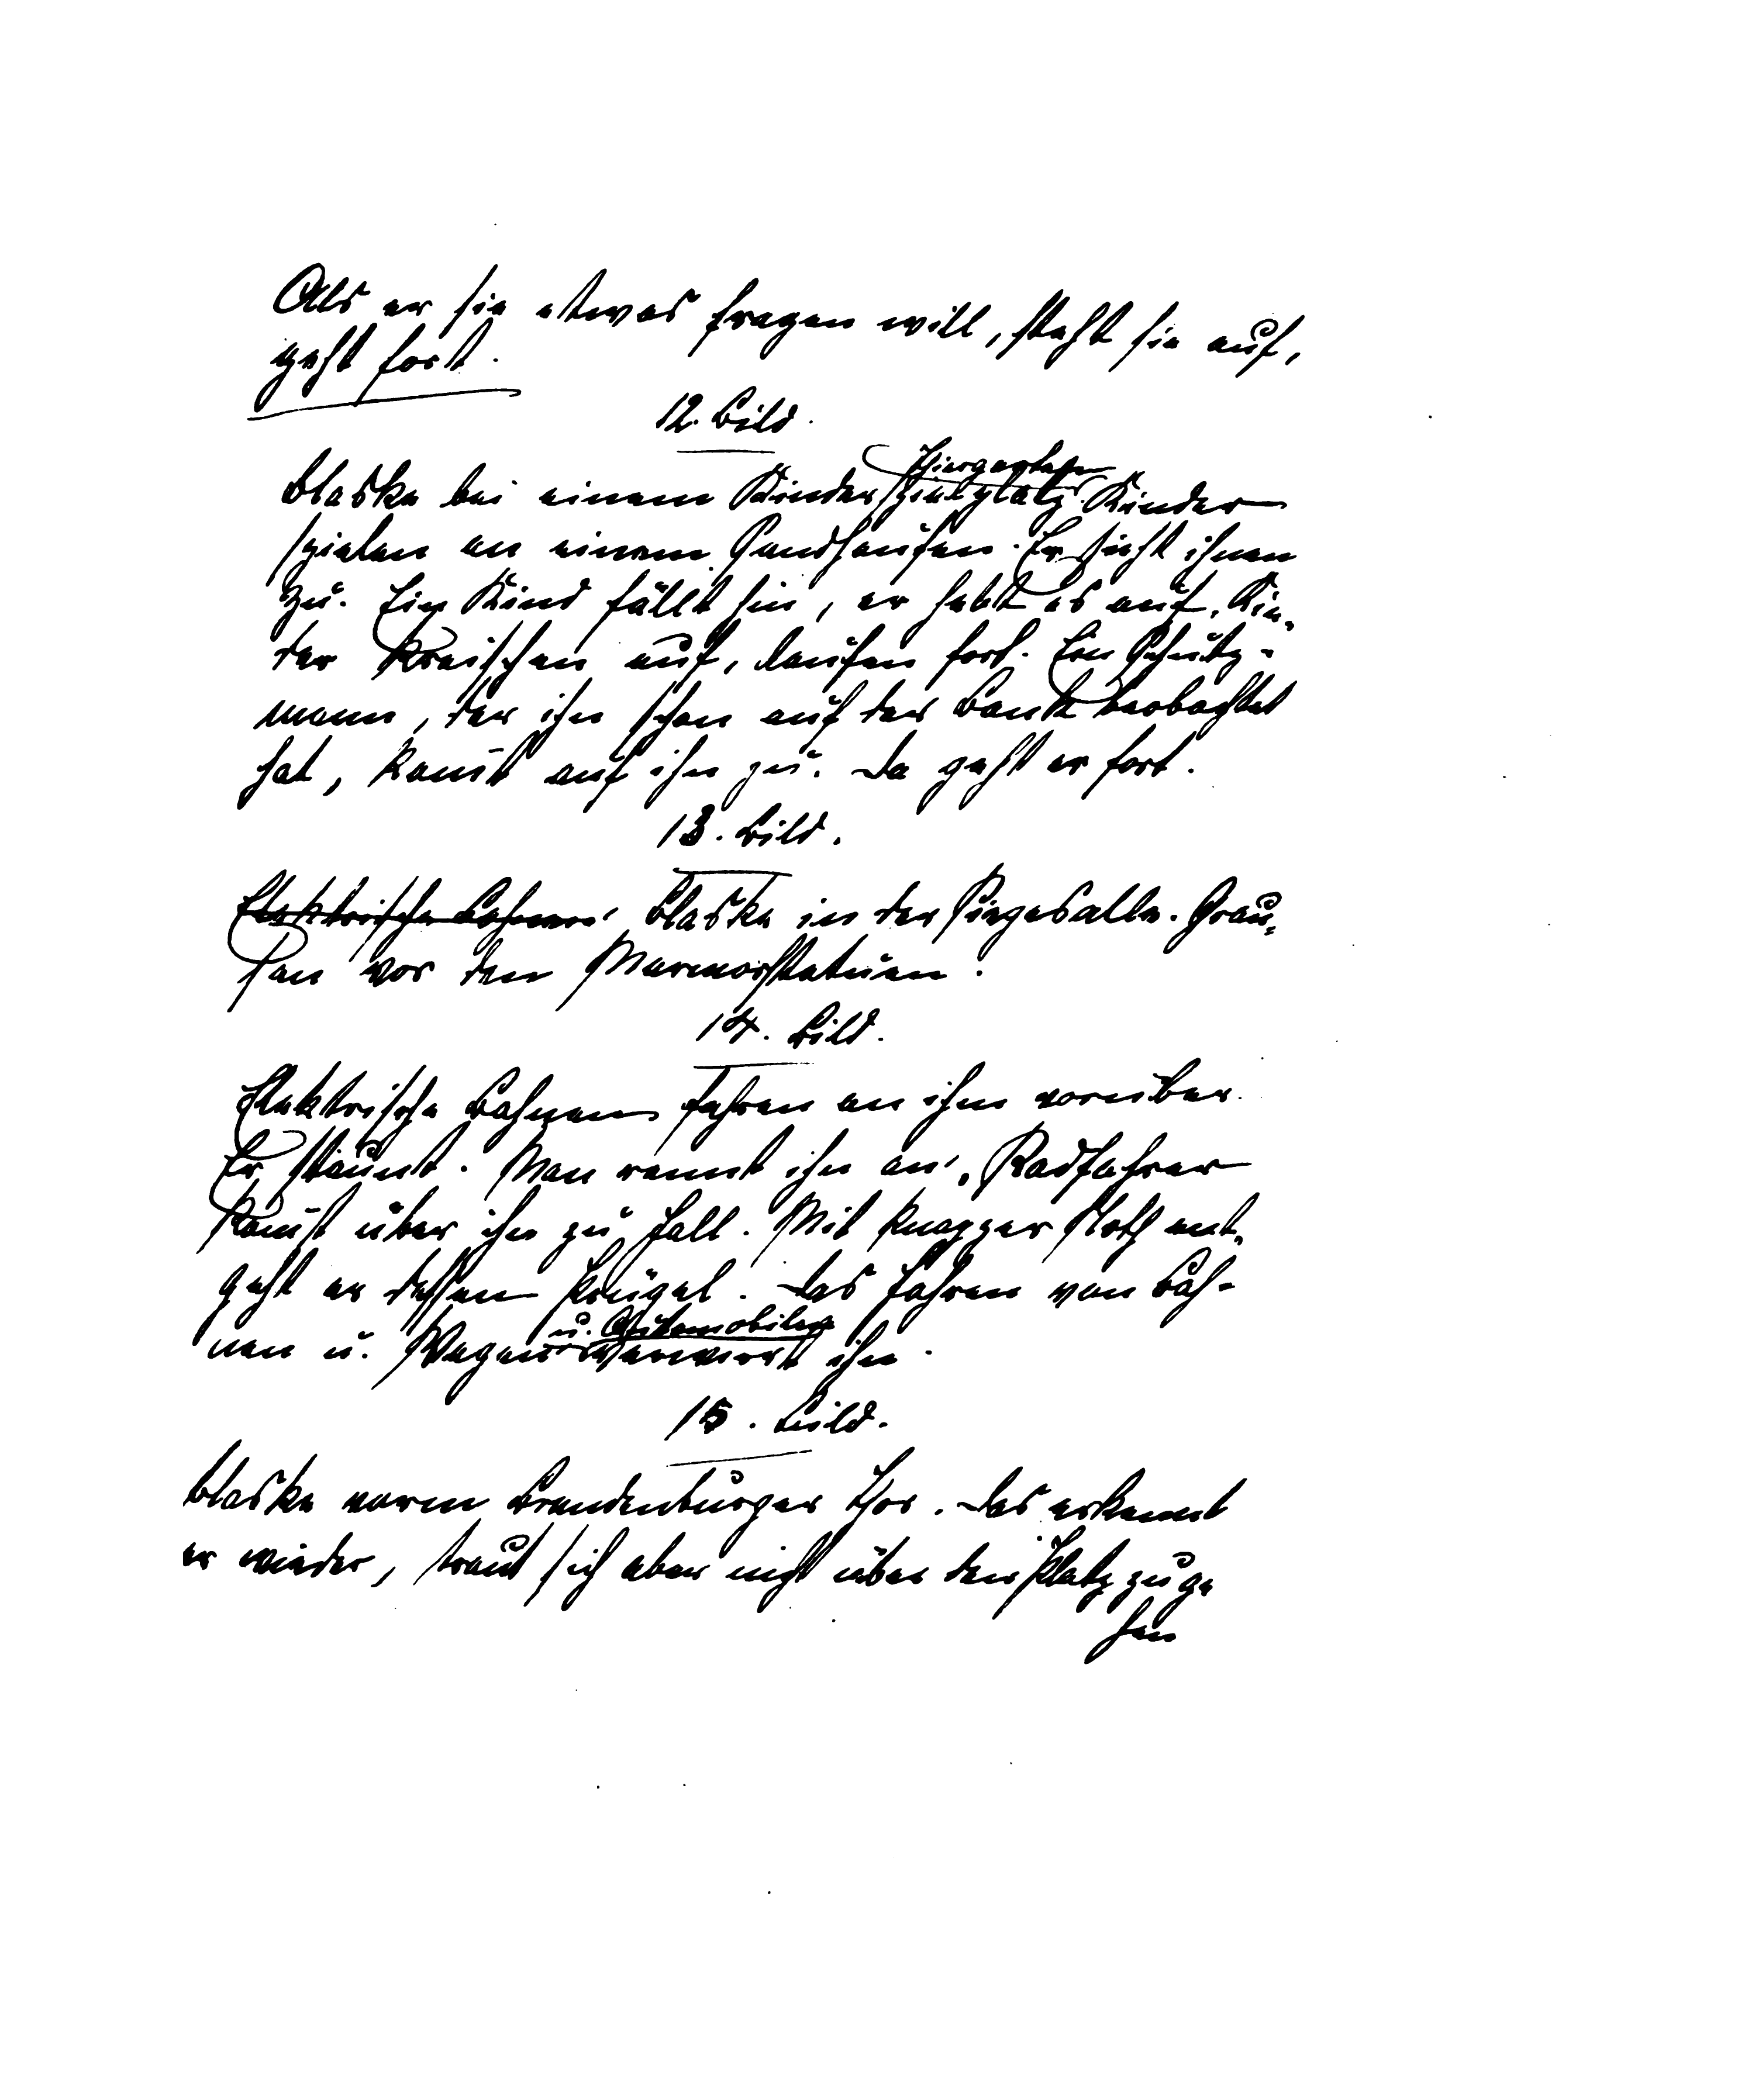 Als er sie etwas fragen will, steht sie auf,
geht fort.
12. Bild.
Thiergarten
Blaske bei einem Kinderspielplatz. Kinder
spielen an einem Sandhaufen. Er sieht ihnen
zu. Ein Kind fällt hin, er hebt es auf. Kin-
der kreischen auf, laufen fort. Ein Schutz-
mann, der ihn schon auf der Bank beobachtet
hat, kom̅t auf ihn zu. Da geht er fort.
13. Bild.
Elektrische Bahnen. Blaske in der Siegesallee. Grau-
sen vor den Marmorstatuen.
14. Bild.
Elektrische Bahnen fahren an ihm vorüber.
Er staunt. Man rennt ihn an, Radfahrer
kom̅t über ihn zu Fall. Mit knapper Noth ent-
geht er dessen Prügel. Das Fahren von Bah-
u. Automobilen
nen u. Wagen verwirrt ihn.
15. Bild.
Blaske vorm Brandenburger Thor. Das erkennt
er wieder, traut sich aber nicht über den Platz zu ge
hen